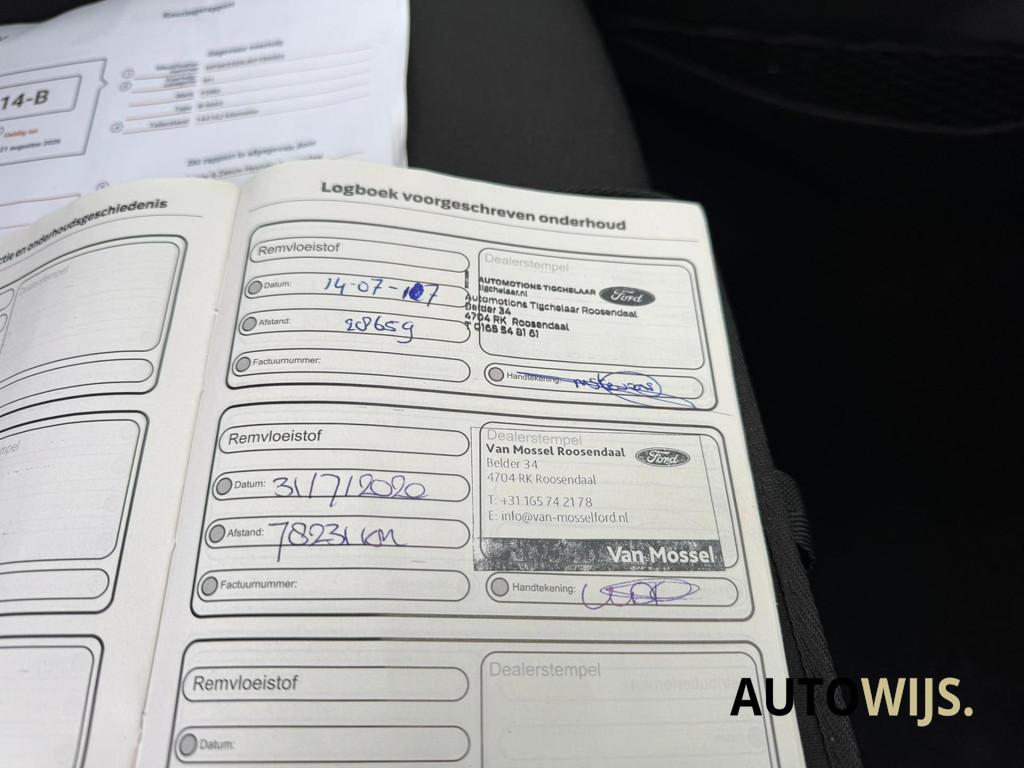 14-B
Geldig tot
21 augustus 2026
Dit rapport is afgegeven door
Tellerstand
Logboek voorgeschreven onderhoud
Remvloeistof
Dealerstempel
Datum: 14-07-17
AUTOMOTIONS TIGCHELAAR
tigchelaar.nl
Ford
Automotions Tigchelaar Roosendaal
Belder 34
4704 RK Roosendaal
T 0165 54 81 61
Afstand: 28659
Factuurnummer:
Handtekening:
Remvloeistof
Dealerstempel
Van Mossel Roosendaal
Ford
Belder 34
4704 RK Roosendaal
Datum: 31/7/2020
T: +31 165 74 21 78
E: info@van-mosselford.nl
Afstand: 78231 KM
Van Mossel
Factuurnummer:
Handtekening:
Remvloeistof
Dealerstempel
Datum:
ctie en onderhoudsgeschiedenis
Dealerstempel
AUTOWIJS.